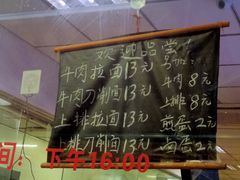 欢迎品尝
牛肉拉面13元
牛肉刀削面13元
上排拉面13元
上排刀削面13元
加:
牛肉8元
上排8元
煎蛋2元
卤蛋2元
间: 下午16:00